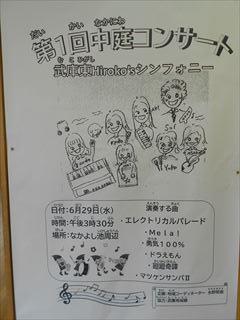 だい かい なかにわ
第1回中庭コンサート
むこひがし
武庫東Hiroko'sシンフォニー
日付:6月29日(水)
時間:午後3時30分
場所:なかよし池周辺
演奏する曲
・エレクトリカルパレード
・Mela!
・勇気100%
・ドラえもん
・廻廻奇譚
・マツケンサンバⅡ